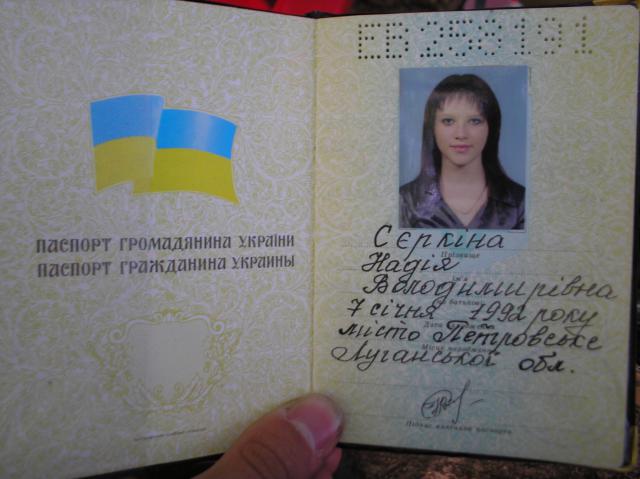 ПАСПОРТ ГРОМАДЯНИНА УКРАЇНИ
ПАСПОРТ ГРАЖДАНИНА УКРАИНЫ
ЕВ 258191
Сєркіна
Прізвище
Надія
Ім'я
Володимирівна
По батькові
7 січня 1992 року
Дата
місто Петровське
Місце народження
Луганської обл.
Підпис власника паспорта